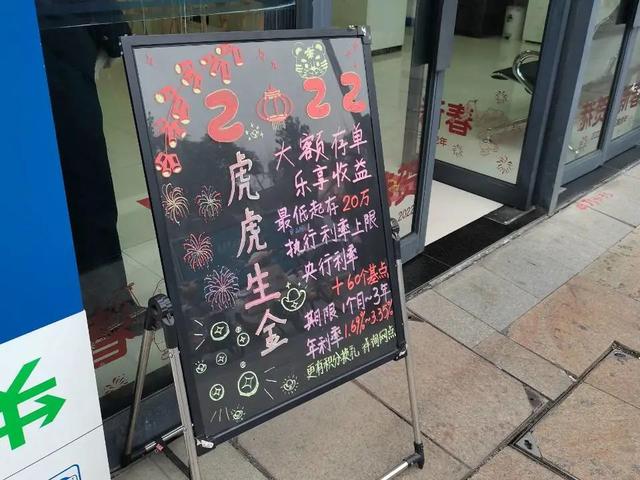 2022
虎虎生金
大额存单
乐享收益
最低起存20万
执行利率上限
央行利率
+60个基点
期限1个月~3年
年利率1.69%~3.35%
更有积分换礼 详询网点
春
2022